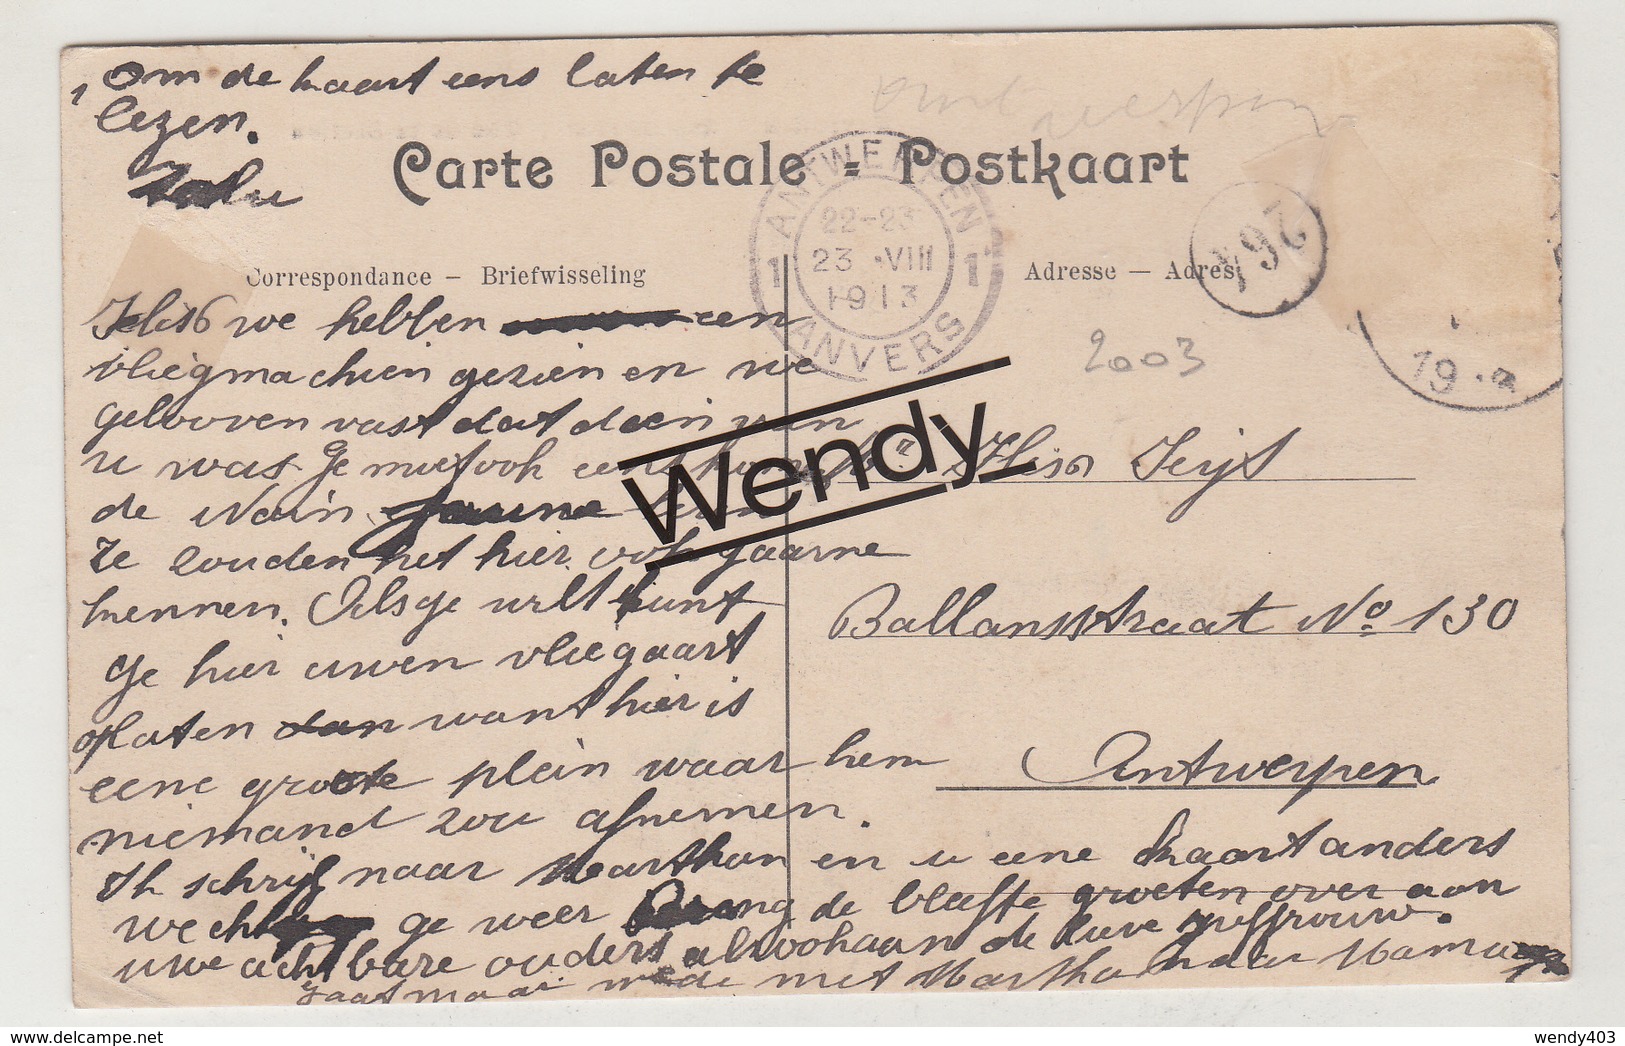 Om de kaart eens laten te
lezen.
Carte Postale = Postkaart
ANTWERPEN
22-23
23 VIII
1913
1 1
ANVERS
Correspondance — Briefwisseling
Adresse — Adres
19
2003
we hebben een
vliegmachien gezien en we
gelooven vast dat deen van
u was. Ge moet ook eens
de Nain Jaune
Ze zouden het hier ook gaarne
kennen. Als ge wilt kunt
ge hier uwen vliegaart
laten want hier is
eene groote plein waar hem
niemand zou afnemen.
Ik schrijf naar Marthan en u eene kaart anders
ge weer Breng de beleefde groeten over aan
uwe achtbare ouders alsook aan de lieve juffrouw.
gaat maar mede met Martha naar Mama
Ballansstraat No 130
Antwerpen
Wendy
wendy403